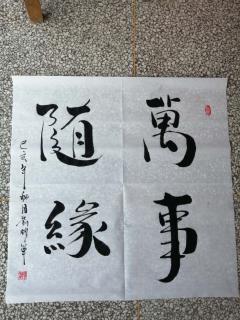 萬事
隨緣
己亥年